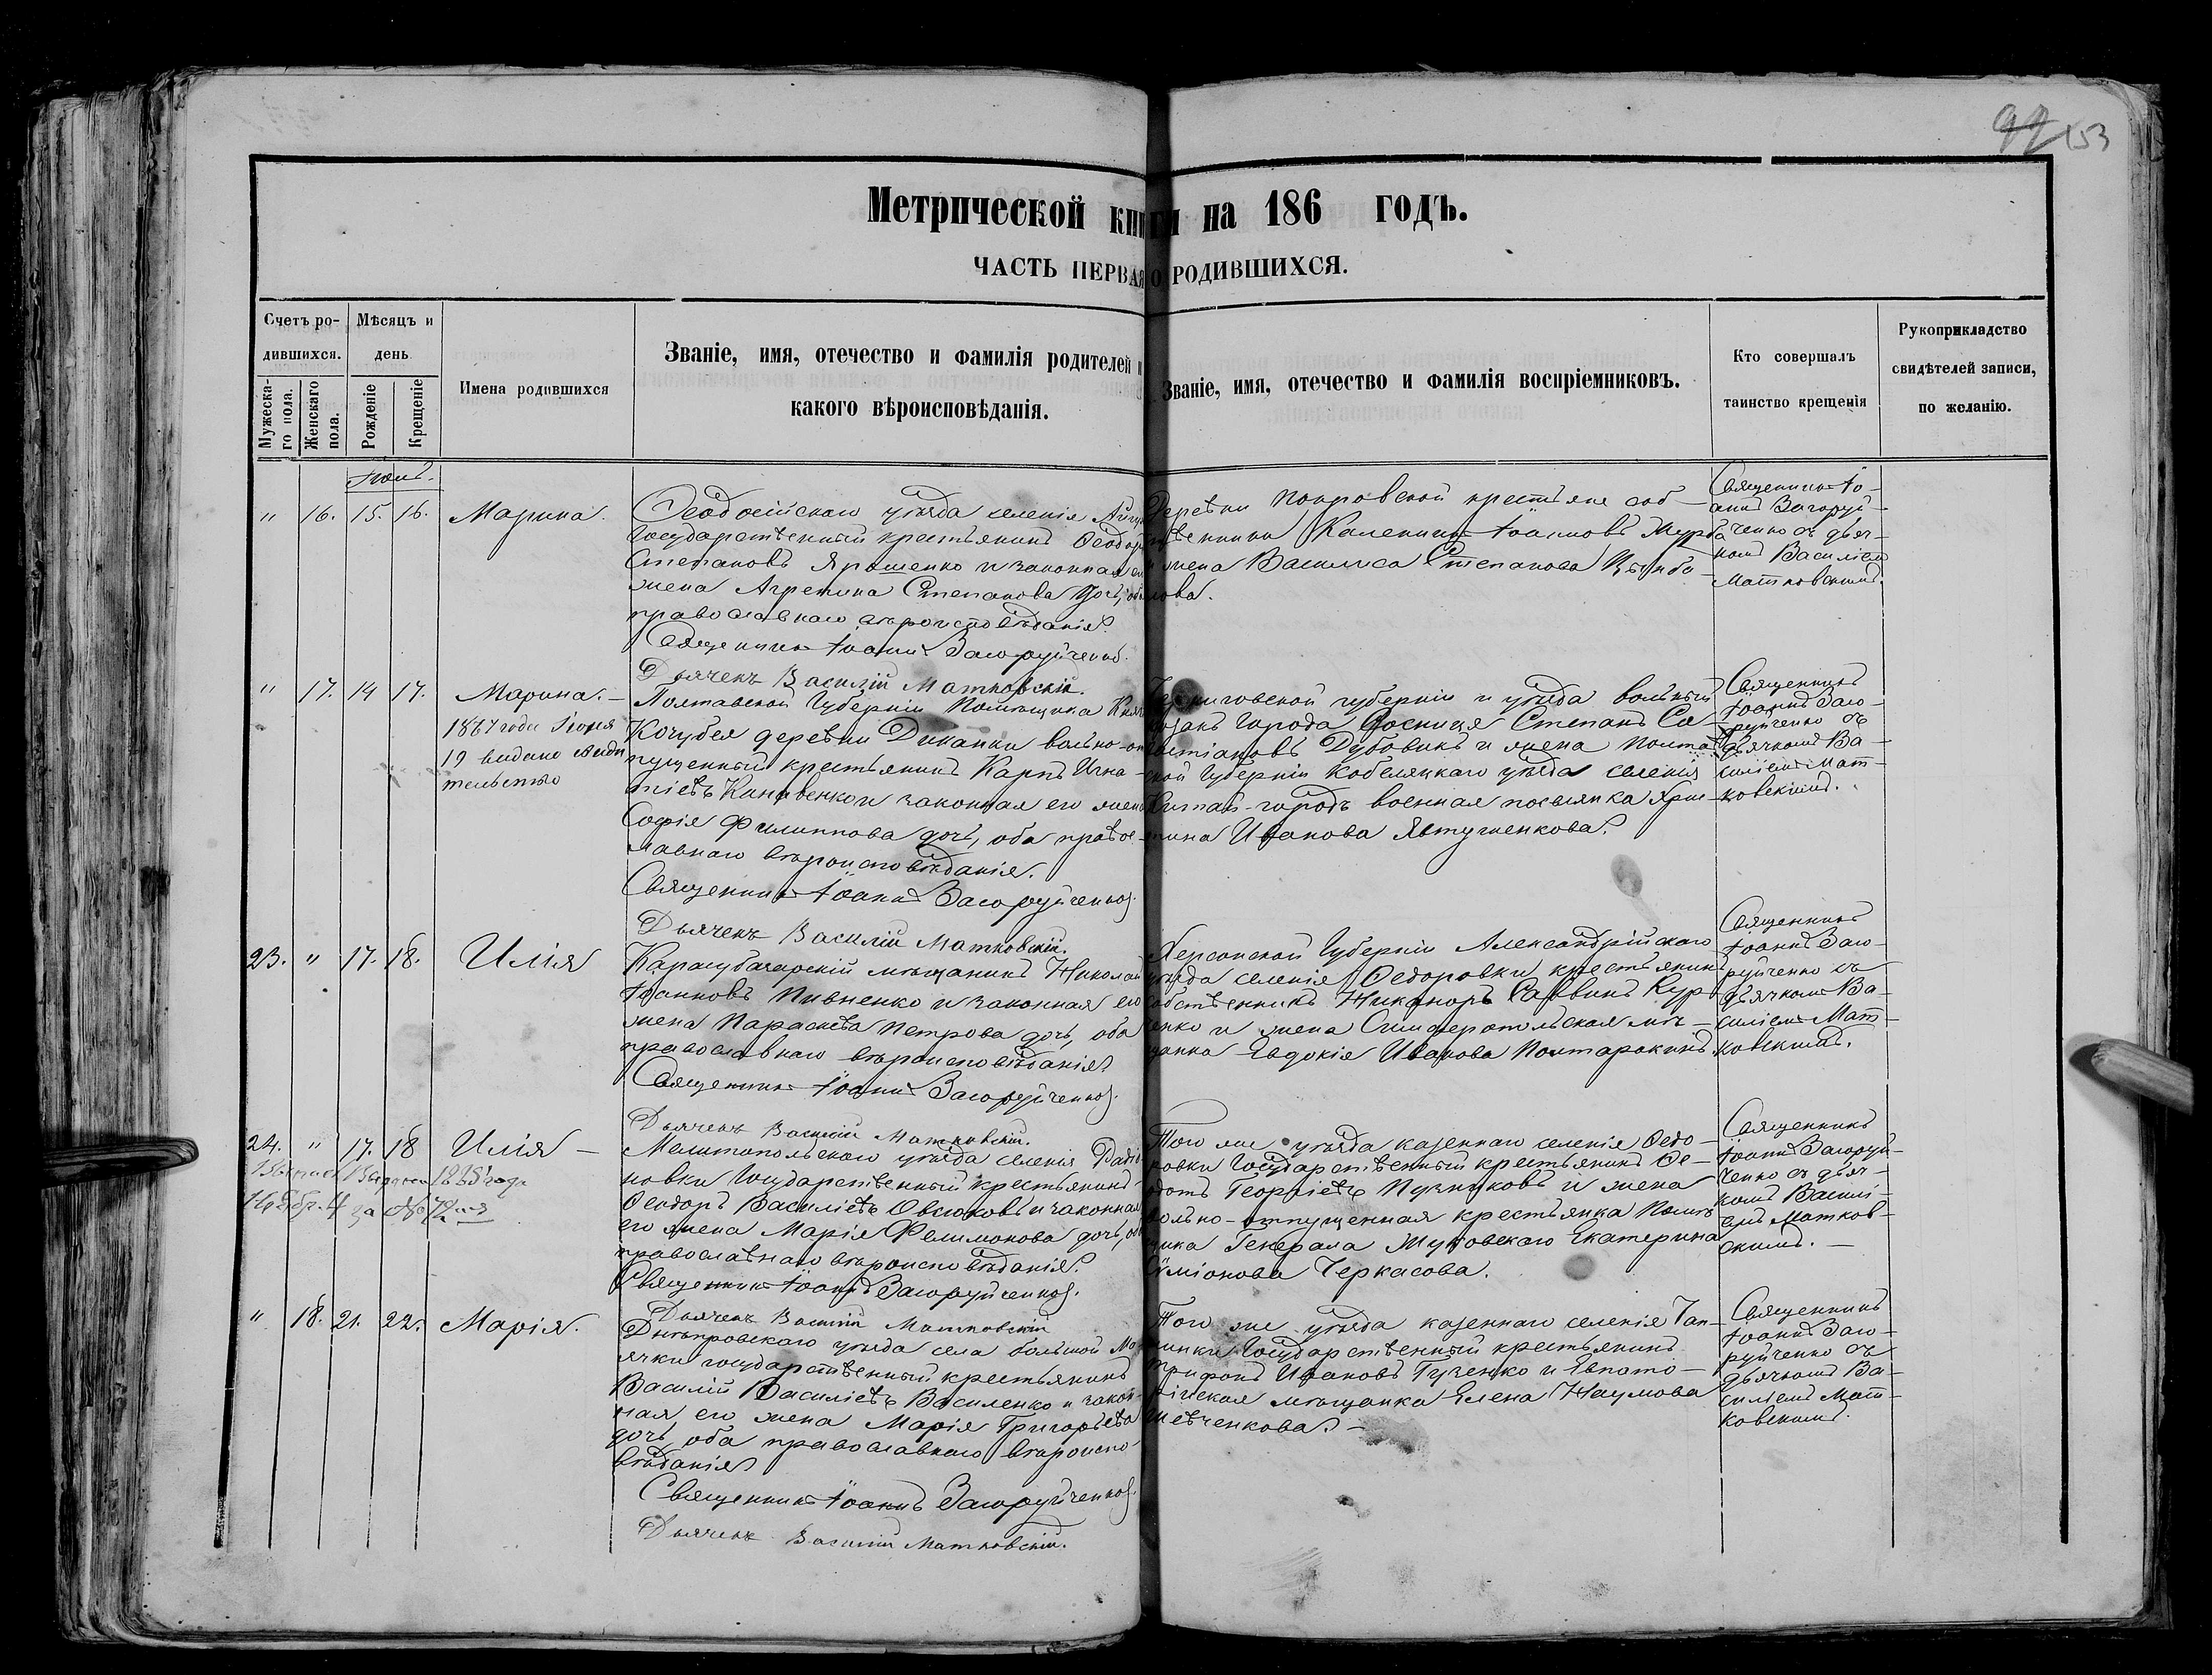 153
Метрической книги на 186 годъ.
ЧАСТЬ ПЕРВАЯ О РОДИВШИХСЯ.
Счетъ ро-
дившихся.
Мужеска-
го пола.
Женскаго
пола.
Мѣсяцъ и
день
Рожденіе
Крещеніе
Имена родившихся
Званіе, имя, отечество и фамилія родителей и
какого вѣроисповѣданія.
Званіе, имя, отечество и фамилія воспріемниковъ.
Кто совершалъ
таинство крещенія
Рукоприкладство
свидѣтелей записи,
по желанію.
" 16. 15. 16. Марина.
Ѳеодосійскаго уѣзда селенія
Государственный крестьянинъ Ѳеодоръ
Степановъ Ярошенко и законная его
жена Агрепина Степанова дочь, оба
православнаго вѣроисповѣданія.
Священникъ Іоаннъ Загоруйченко.
Дьячекъ Василій Матковскій.
Деревни Покровской крестьяне соб-
ственники Каленикъ Іоанновъ
и жена Василиса Степанова
лова.
Священникъ Іо-
аннъ Загоруй-
ченко съ дьяч-
комъ Василіем
Матковскимъ.
" 17. 14 17. Марина.-
1867 года Іюня
19 видано свиди
тельство
Полтавской Губерніи Помѣщика Князя
Кочубея деревни Диканки вольно-от
пущенный крестьянинъ Карпъ Игна-
тіевъ и законная его жена
Софія Филиппова дочь, оба право-
лавнаго вѣроисповѣданія.
Священникъ Іоаннъ Загоруйченко.
Дьячекъ Василій Матковскій.
Черниговской губерніи и уѣзда вольный
козакъ города Сосница Степанъ Са-
Дубовикъ и жена Полтав
ской Губерніи Кобеляцкаго уѣзда селенія
Китай-городъ военная поселянка Хрис-
тина Иванова Явтушенкова.
Священникъ
Іоаннъ Заго-
руйченко съ
дьячкомъ Ва-
силіемъ Мат-
ковскимъ.
23. " 17. 18. Илія
Карасубазарскій мѣщанинъ Николай
Іоанновъ Пивненко и законная его
жена Параскева Петрова дочь, оба
православнаго вѣроисповѣданія.
Священникъ Іоаннъ Загоруйченко.
Дьячекъ Василій Матковскій.
Херсонской Губерніи Александрійскаго
уѣзда селенія Ѳедоровки крестьянин
собственникъ Никаноръ Саввинъ Кур-
енко и жена Симферопольская мѣ-
щанка Евдокія Иванова
Священникъ
Іоаннъ Заго-
руйченко съ
дьячкомъ Ва-
силіемъ Мат-
ковскимъ.
24. " 17. 18 Илія -
1885 года
Мелитопольскаго уѣзда селенія Давид
новки Государственный крестьянинъ
Ѳеодоръ Василіевъ Овсюковъ и законная
его жена Марія Филимонова дочь, оба
православнаго вѣроисповѣданія.
Священникъ Іоаннъ Загоруйченко.
Дьячекъ Василій Матковскій
Того же уѣзда казеннаго селенія Ѳедо-
ровки Государственный крестьянинъ Ѳе-
дотъ Георгіевъ Пузиковъ и жена
вольно-отпущенная крестьянка Помѣ
щика Генерала Жуковскаго Екатерина
Симіонова Черкасова.
Священникъ
Іоаннъ Загоруй-
ченко съ дьяч-
комъ Василі-
емъ Матков-
скимъ. -
" 18. 21. 22. Марія.
Днѣпровскаго уѣзда села Большой Ма
ячки государственный крестьянинъ
Василій Василіевъ Василенко и закон-
ная его жена Марія Григорьева
дочь, оба православнаго вѣроиспо-
вѣданія
Священникъ Іоаннъ Загоруйченко.
Дьячекъ Василій Матковскій.
Того же уѣзда казеннаго селенія Чап-
линки Государственный крестьянинъ
Трифонъ Ивановъ Гученко и Евпато-
рійская мѣщанка Елена Наумова
Шевченкова. -
Священникъ
Іоаннъ Заго-
руйченко съ
дьячкомъ Ва-
силіемъ Мат-
ковскимъ.